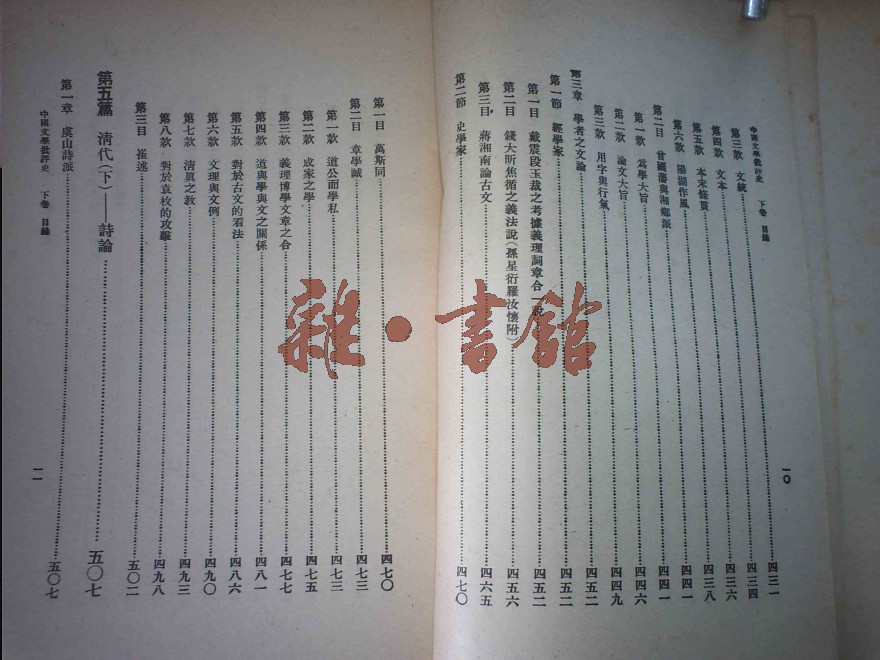 中國文學批評史 下卷 目錄
一〇
第三款 文統……四三一
第四款 文本……四三四
第五款 本末條貫……四三六
第六款 陽湖作風……四三八
第二目 曾國藩與湘鄉派……四四一
第一款 爲學大旨……四四一
第二款 論文大旨……四四六
第三款 用字與行氣……四四九
第三章 學者之文論……四五二
第一節 經學家……四五二
第一目 戴震段玉裁之考據義理詞章合一說……四五二
第二目 錢大昕焦循之義法說(孫星衍羅汝懷附)……四五六
第三目 蔣湘南論古文……四六五
第二節 史學家……四七〇
第一目 萬斯同……四七〇
第二目 章學誠……四七三
第一款 道公而學私……四七三
第二款 成家之學……四七五
第三款 義理博學文章之合……四七七
第四款 道與學與文之關係……四八一
第五款 對於古文的看法……四八六
第六款 文理與文例……四九〇
第七款 清眞之教……四九三
第八款 對於袁枚的攻擊……四九八
第三目 崔述……五〇二
第五篇 清代(下)——詩論……五〇七
第一章 虞山詩派……五〇七
中國文學批評史 下卷 目錄
一一
雜·書館